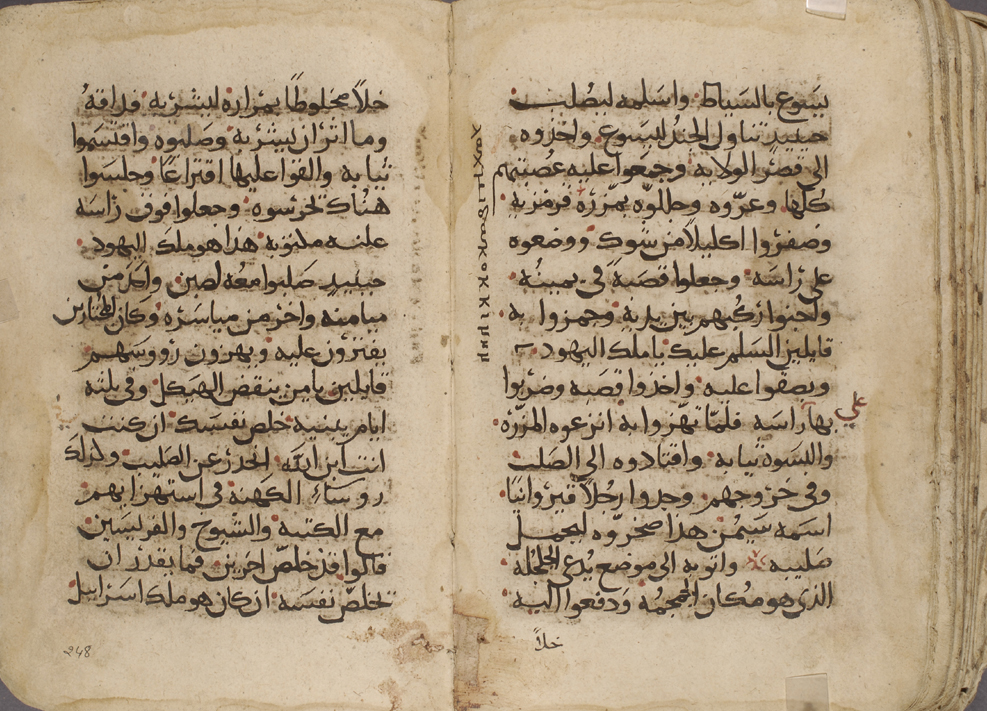 يسوع بالسياط واسلمه ليصلب
حينيد تناول الجند ليسوع واخدوه
الى قصر الولايه وجمعوا عليه عصبتهم
كلها وعروه وجللوه بمزره قرمزيه
وضفروا اكليلا من شوك ووضعوه
على راسه وجعلوا قصبة في يمينه
واحنوا ركبهم بين يديه وجمزوا به
قايلين السلم عليك يا ملك اليهود
وبصقوا عليه واخذوا قصبه وضربوا
بها راسه فلما تهزوا به انزعوه المزره
على
والبسوه ثيابه واقتادوه الى الصلب
وفي خروجهم وجدوا رجلا قيروانيا
اسمه سيمن هذا سخروه ليحمل
صليبه واتو به الى موضع يدعى الجلجله
الذي هو مكان الجمجمه ودفعوا اليه
خلا
خلا مخلوطا بمراره ليشربه فداقه
وما اثر ان يشربه وصلبوه واقتسموا
ثيابه والقوا عليها اقتراعا وجلسوا
هناك لحرسوه وجعلوا فوق راسه
علته مكتوبه هذا هو ملك اليهود
حينيد صلبوا معه لصين واحد من
ميامنه واخر من مياسره وكان المجتازين
يفترون عليه ويهزون رووسهم
قايلين يا من ينقض الهيكل وفي ثلثه
ايام يبنيه خلص نفسك ان كنت
انت ابن الله انحدر عن الصليب وكذلك
روساء الكهنه في استهزايهم
مع الكتبه والشيوخ والفريسين
قالوا قد خلص اخرين فما يقدر ان
يخلص نفسه ان كان هو ملك اسراييل
248